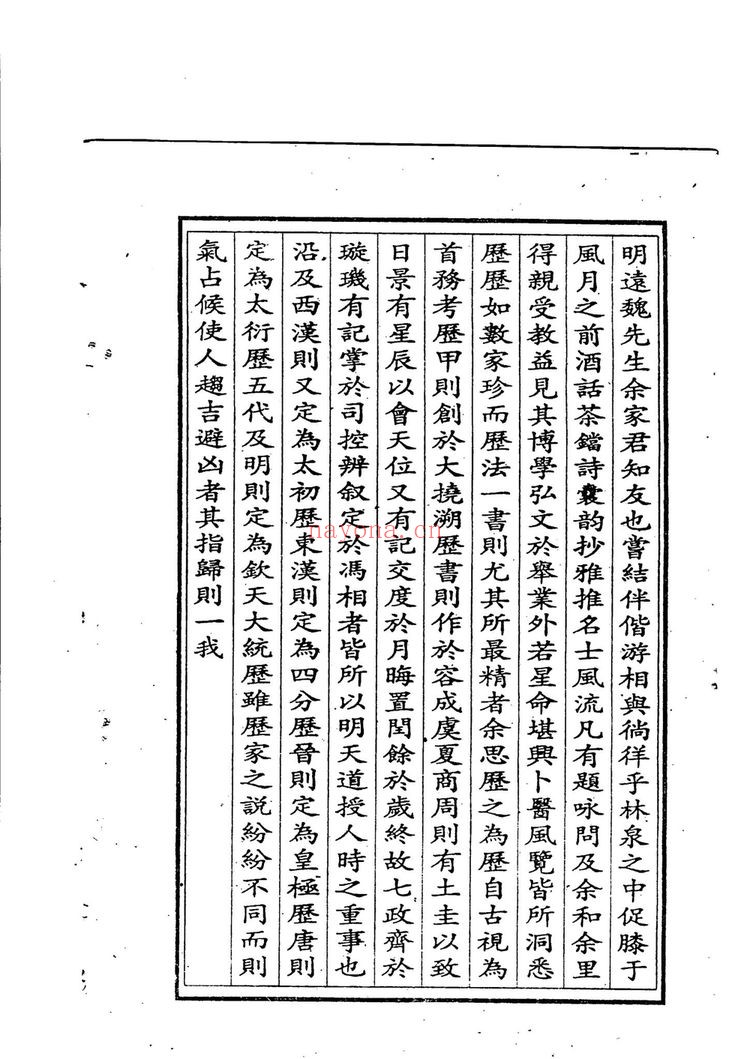 明遠魏先生余家君知友也嘗結伴偕游相與徜徉乎林泉之中促膝于
風月之前酒話茶鐺詩囊韵抄雅推名士風流凡有題咏問及余和余里
得親受教益見其博學弘文於舉業外若星命堪輿卜醫風覽皆所洞悉
歷歷如數家珍而歷法一書則尤其所最精者余思歷之為歷自古視為
首務考歷甲則創於大撓溯歷書則作於容成虞夏商周則有土圭以致
日景有星辰以會天位又有記交度於月晦置閏餘於歲終故七政齊於
璇璣有記掌於司控辨叙定於馮相者皆所以明天道授人時之重事也
沿及西漢則又定為太初歷東漢則定為四分歷晉則定為皇極歷唐則
定為太衍歷五代及明則定為欽天大統歷雖歷家之說紛紛不同而則
氣占候使人趨吉避凶者其指歸則一我
nayona.cn